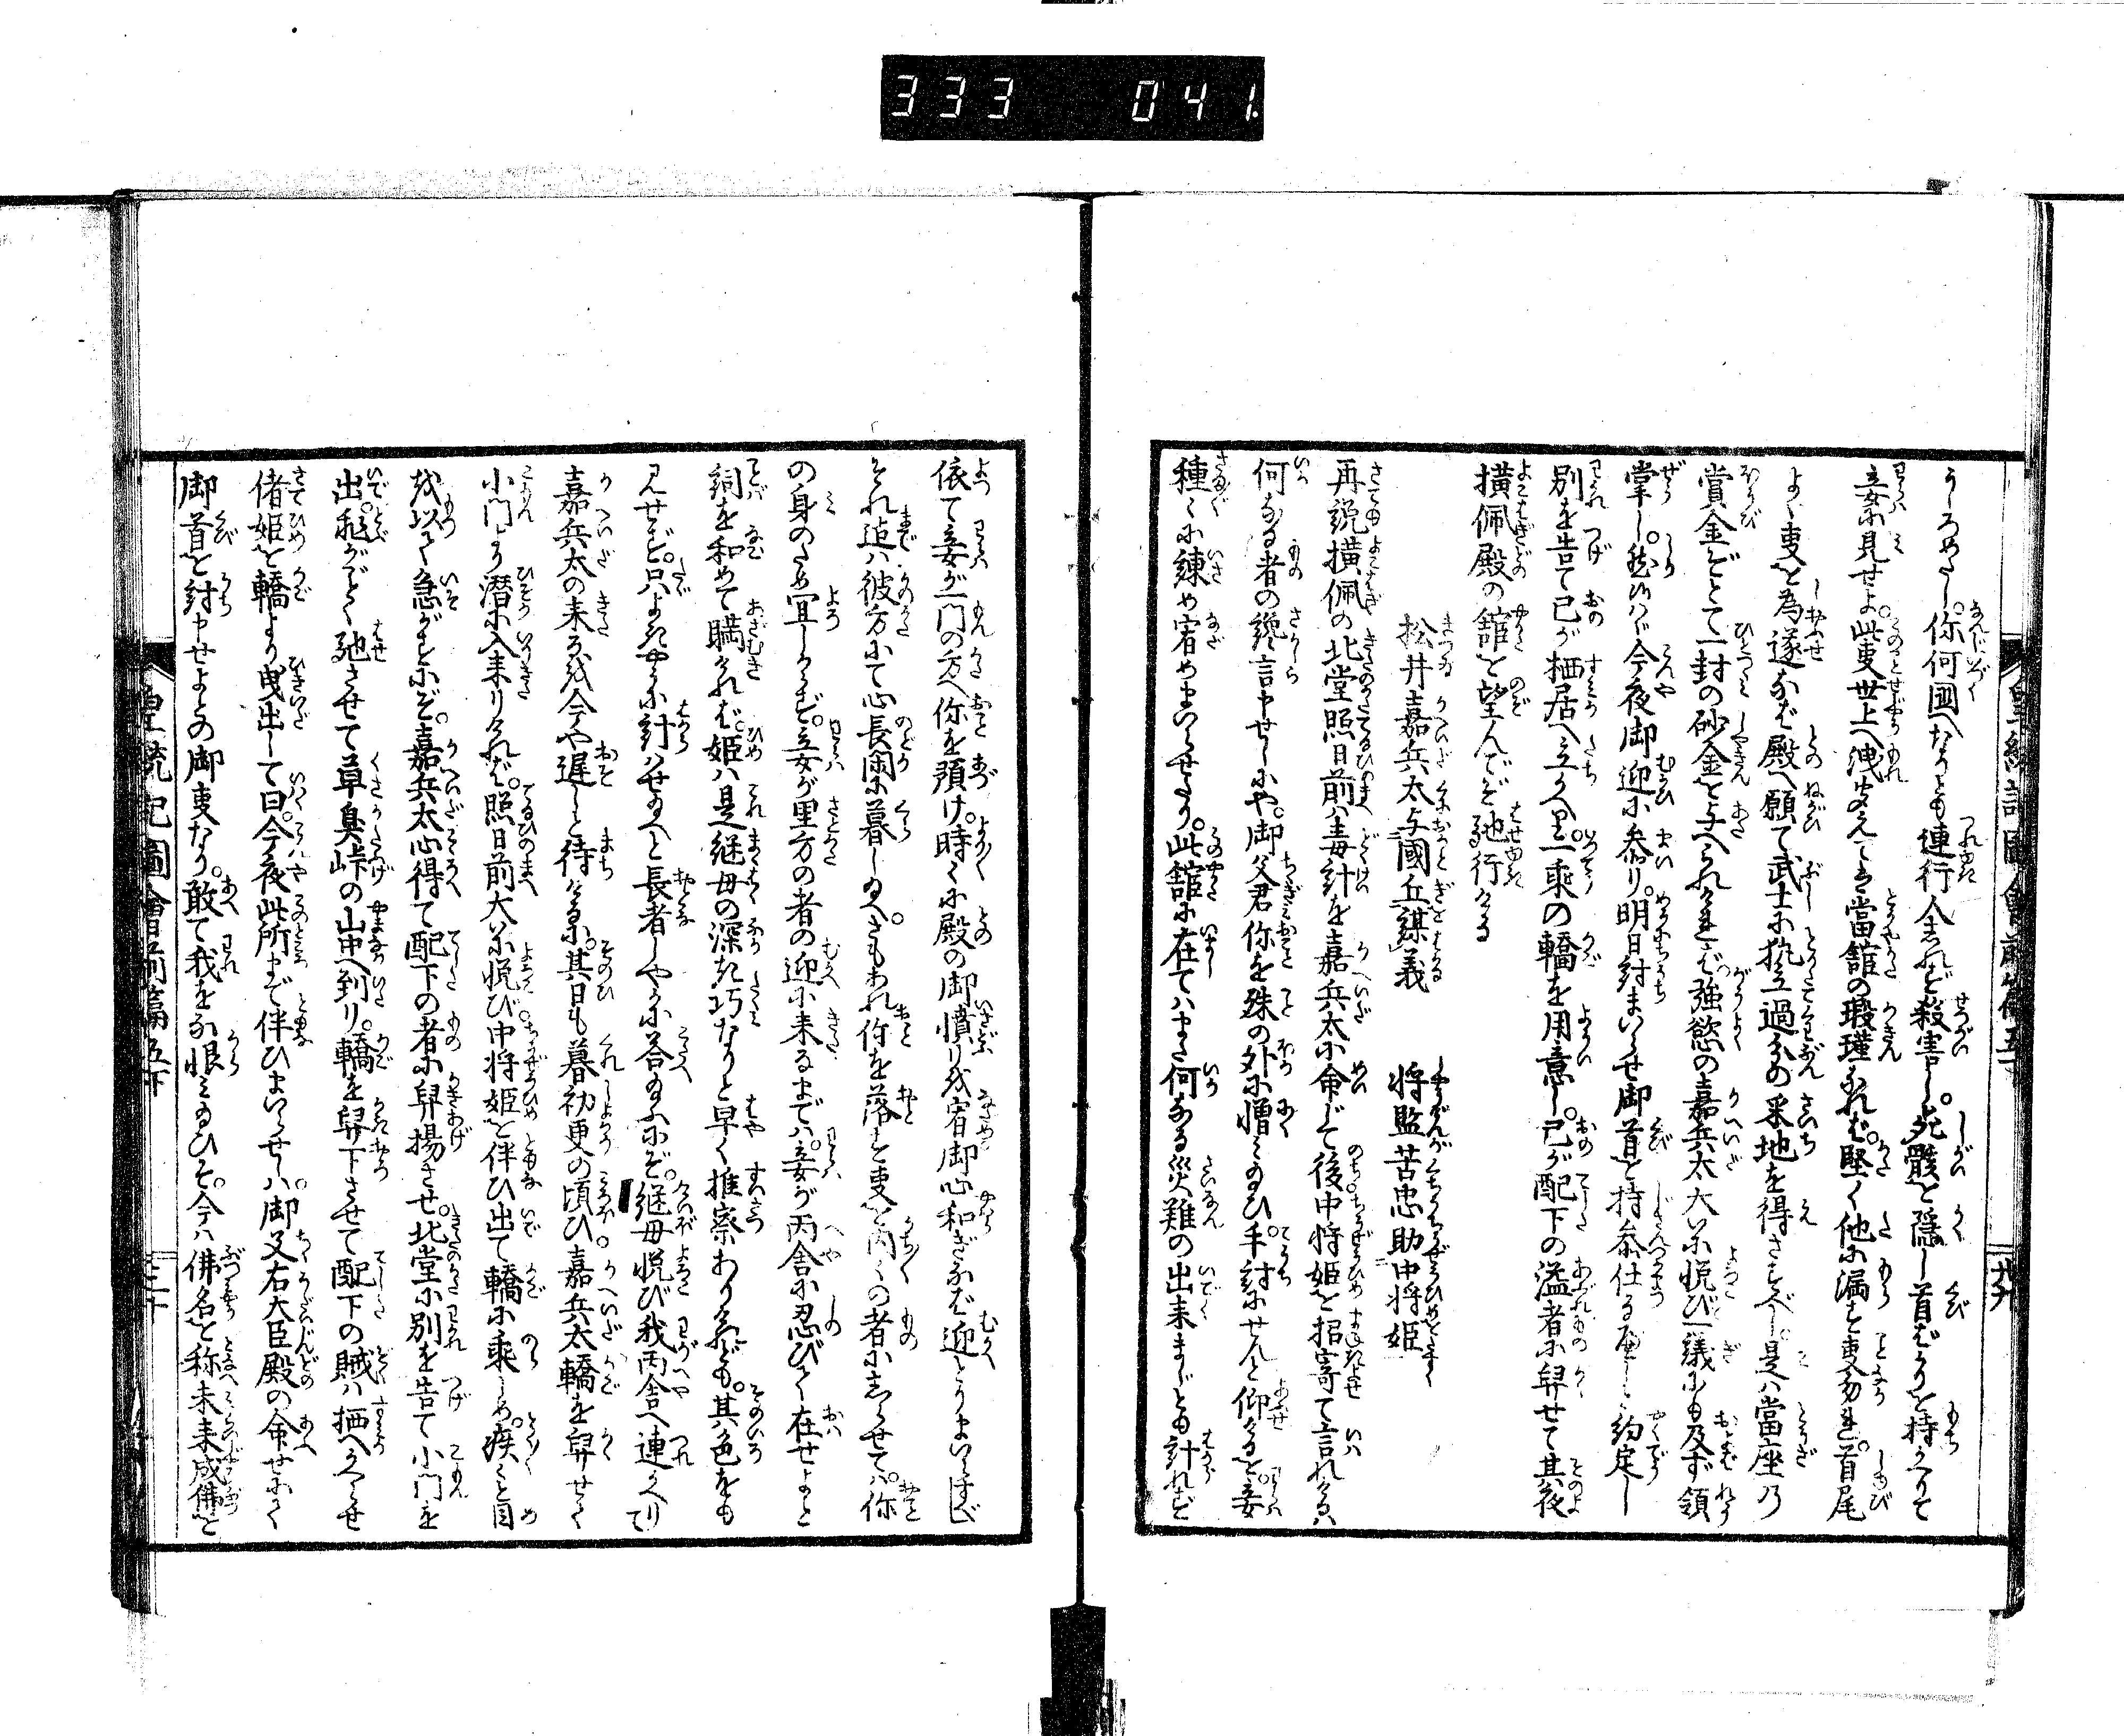 333 041
皇統記圖會前篇五下
廿九
うしろめたし。你何國へなりとも連行余れど殺害し。死骸を隠し首ばかりを持かへりて
妾に見せよ。此㕝世上へ洩聞えては當舘の瑕瑾なれば。堅く他に漏す㕝勿れ。首尾
よく㕝を為遂なば殿へ願て武士に執立過分の采地を得さすべし。是ハ當座の
賞金ぞとて一封の砂金を与へられければ。強慾の嘉兵太大に悦び一議にも及ず領
掌し。然らバ今夜御迎に参り。明日討まいらせ御首を持参仕るべしと約定し
別を告て己が栖居へ立かへり。一乘の轎を用意し。己が配下の溢者に舁せて其夜
横佩殿の舘を望んでぞ馳行ける
松井嘉兵太与國丘謀義　将監苦忠助中将姫
再説横佩の北堂照日前ハ毒計を嘉兵太に命じて後中将姫を招寄て言れけるハ
何なる者の讒言申せしにや。御父君你を殊の外に憎み給ひ。手討にせんと仰るを。妾
種々に諌め宥めまいらせたり。此舘に在てハまた何なる災難の出来まじとも計れず
依て妾が一門の方へ你を預け。時々に殿の御憤りを宥御心和ぎなば迎とりまいらすべし
それ迄ハ彼方にて心長閑に暮し給へ。さもあれ你を落す㕝を内々の者にしらせてハ。你
の身のため宜しからず。妾が里方の者の迎に来るまでハ。妾が丙舎に忍びて在せよと
詞を和めて瞞ければ。姫ハ是継母の深き巧なりと早く推察ありけれども。其色をも
見せず。只よきやうに計ハせ給へと長者しやかに答給ふにぞ。継母悦び我丙舎へ連かへりて
嘉兵太の来るを今や遅しと待けるに。其日も暮初更の頃ひ。嘉兵太轎を舁せて
小門より潜に入来りければ。照日前大に悦び。中将姫を伴ひ出て轎に乘しめ。疾々と目
を以て急がすにぞ。嘉兵太心得て配下の者に舁揚させ。北堂に別を告て小門を
出。飛がごとく馳させて草臭峠の山中へ到り。轎を舁下させて配下の賊ハ栖へかへらせ
偖姫を轎より曳出して曰。今夜此所まで伴ひまいらせしハ。御父右大臣殿の命せにて
御首を討申せよとの御㕝なり。敢て我をな恨み給ひそ。今ハ佛名を称未来成佛を
皇統記圖會前篇五下
三十